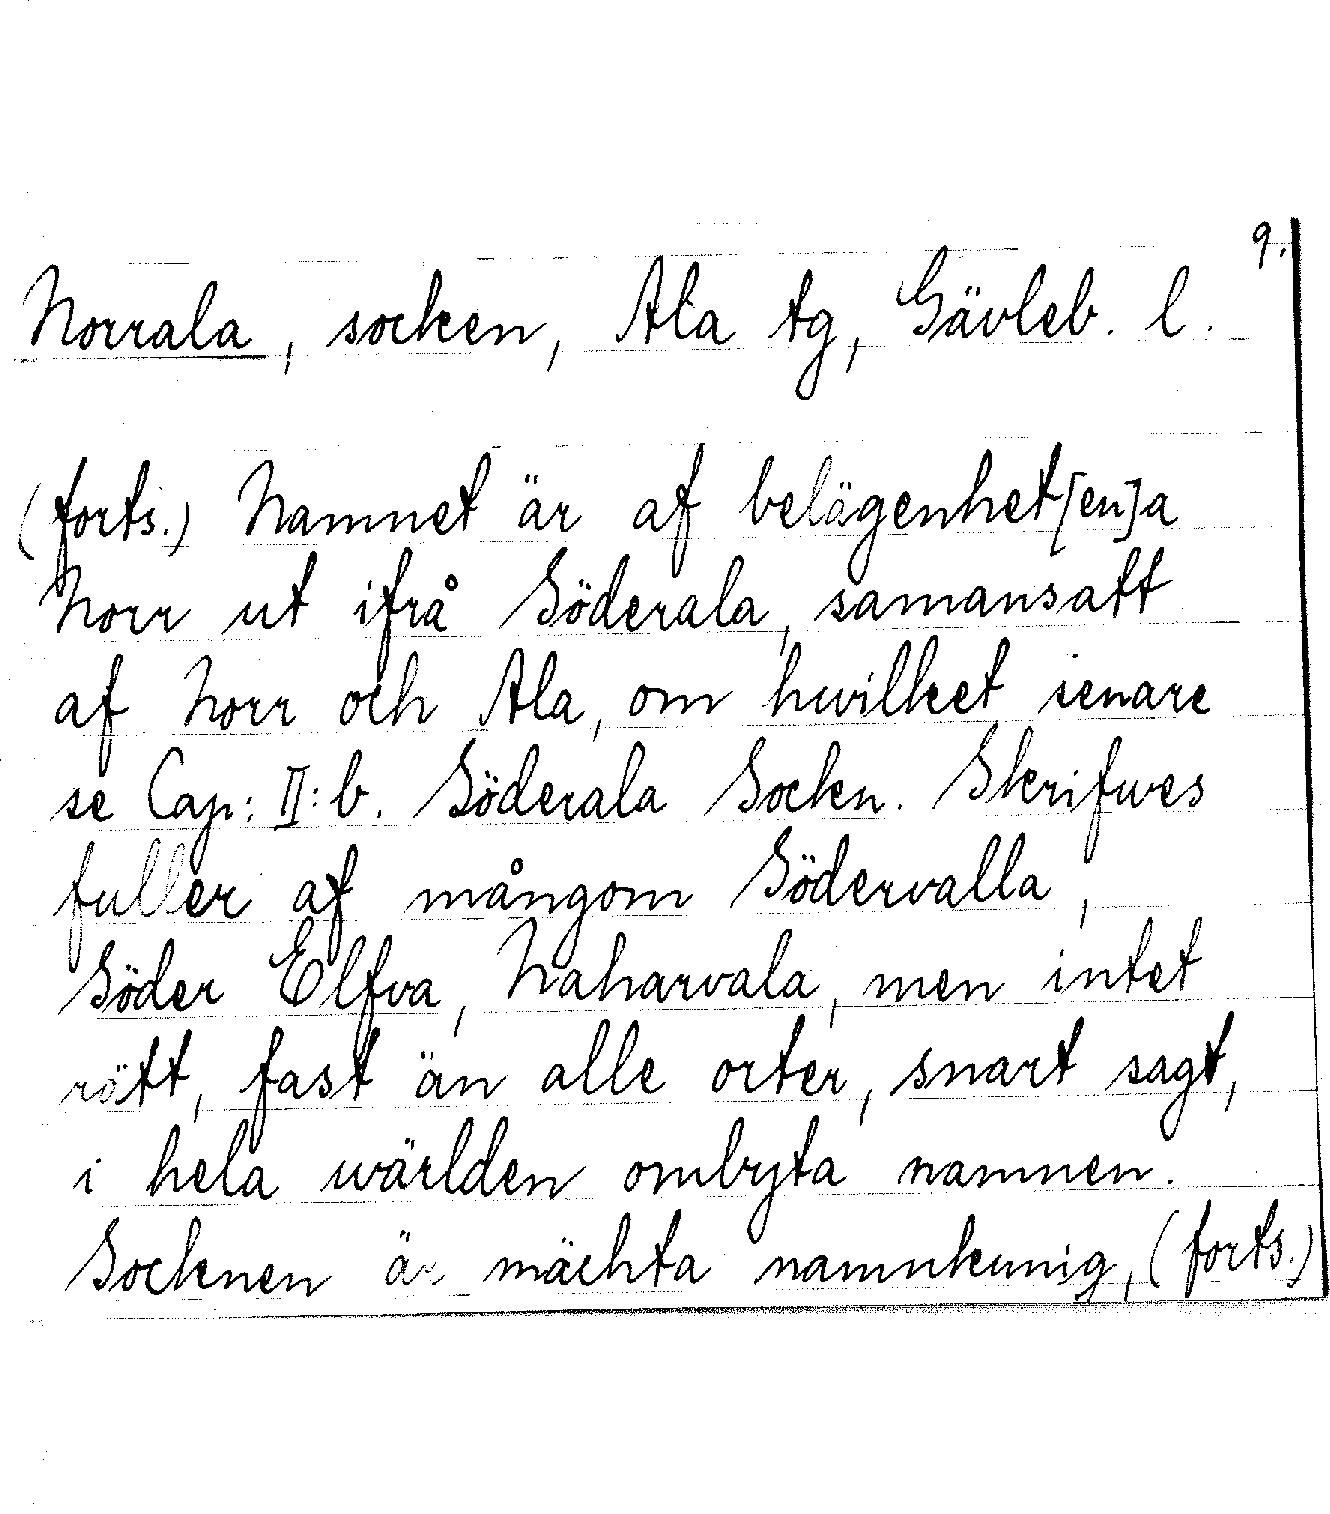 9.
Norrala, socken, Ala tg, Gävleb. l.
(forts.) Namnet är af belägenhet[en]a
Norr ut ifrå Söderala, samansatt
af Norr och Ala, om hwilket senare
se Cap: II: b. Söderala Sockn. Skrifwes
fuller af mångom Södervalla,
Söder Elfva, Naharvala, men intet
rätt, fast än alle orter, snart sagt,
i hela wärlden ombyta namnen.
Socknen är mächta namnkunig, (forts.)